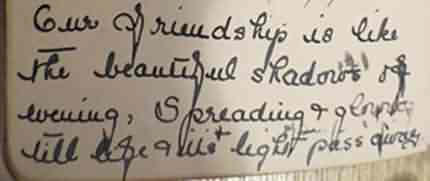 Our Friendship is like
the beautiful shadows of
evening, Spreading &
till life & its light pass away.